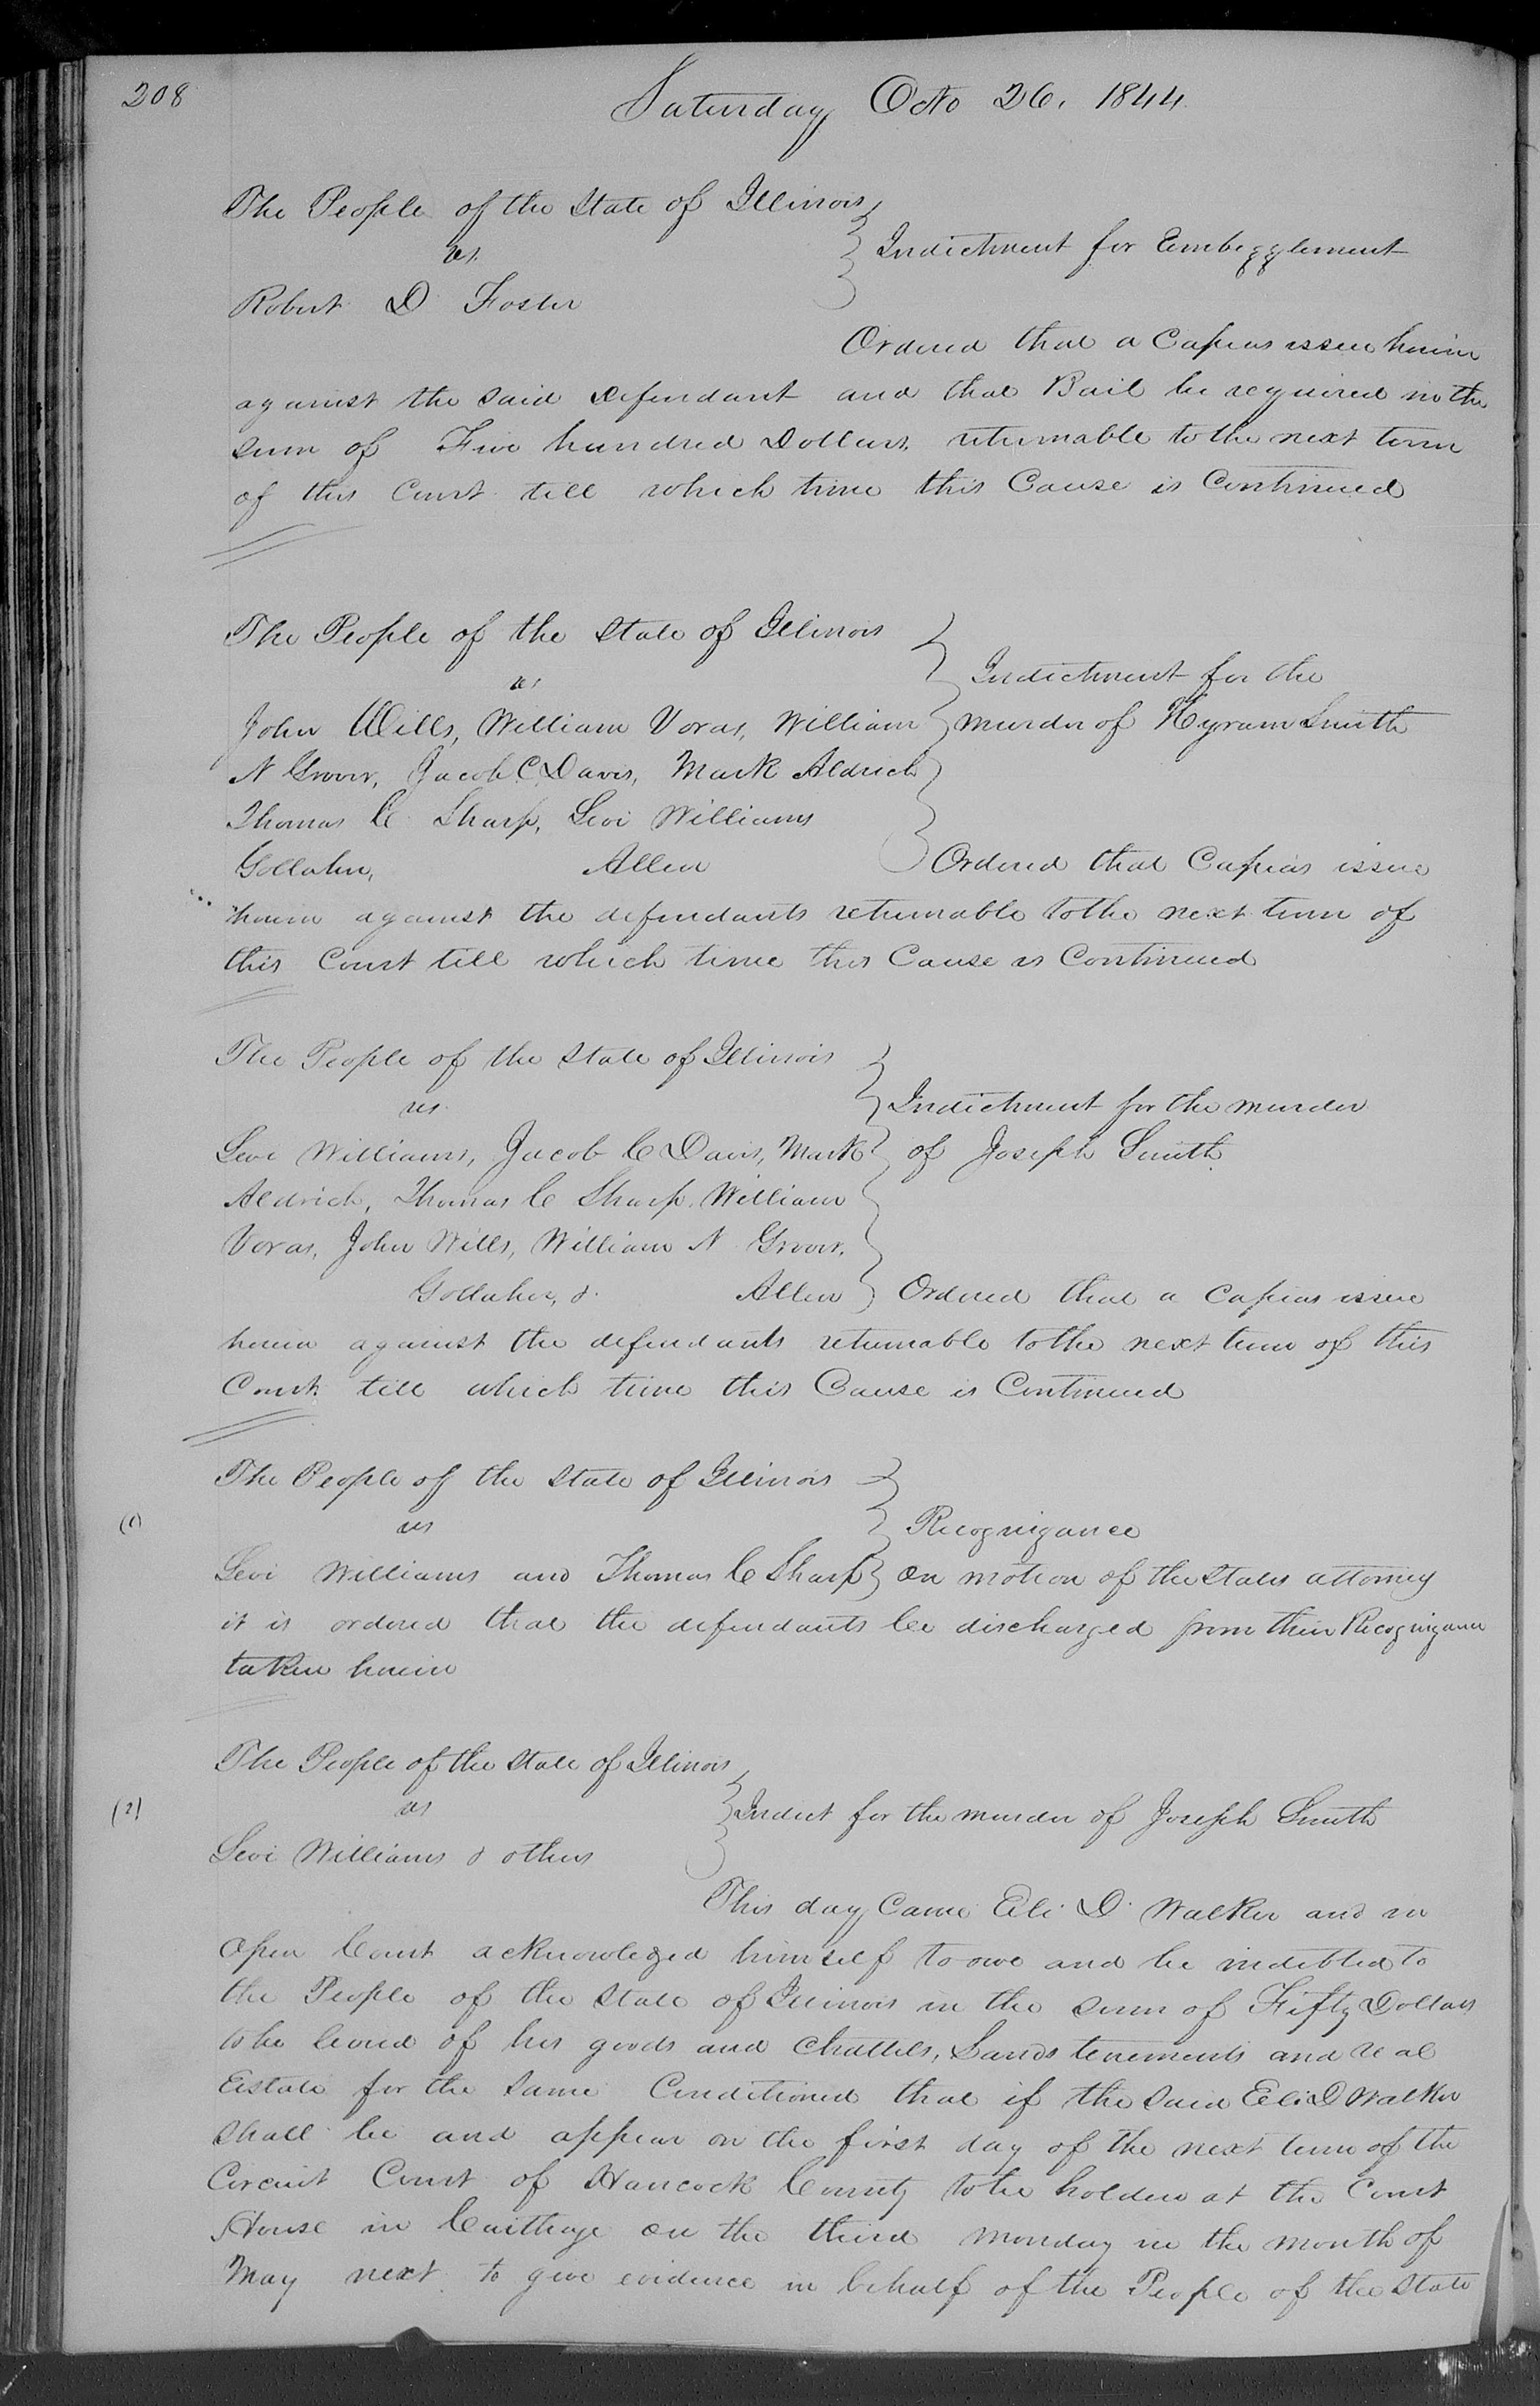 208
Saturday Octo 26. 1844
The People of the State of Illinois
vs.
Indictment for Embezzlement
Robert D Foster
Ordered that a Capias issue herein
against the said Defendant and that Bail be required in the
sum of Five hundred Dollars, returnable to the next term
of this Court till which time this Cause is Continued
The People of the State of Illinois
vs
Indictment for the
John Wills, William Voras, William
murder of Hyram Smith
N Grover, Jacob C Davis, Mark Aldrich
Thomas C Sharp, Levi Williams
Gollaher, Allen
Ordered that Capias issue
herein against the defendants returnable to the next term of
this Court till which time this Cause is Continued
The People of the State of Illinois
vs
Indictment for the murder
Levi Williams, Jacob C Davis, Mark
of Joseph Smith
Aldrich, Thomas C Sharp, William
Voras, John Wills, William N Grover,
Gollaher, & Allen
Ordered that a Capias issue
herein against the defendants returnable to the next term of this
Court till which time this Cause is Continued
The People of the State of Illinois
(1)
vs
Recognizance
Levi Williams and Thomas C Sharp
On motion of the States attorney
it is ordered that the defendants be discharged from their Recognizance
taken herein
The People of the State of Illinois
(2)
vs
Indict for the murder of Joseph Smith
Levi Williams & others
This day Came Eli D. Walker and in
Open Court acknowleged himself to owe and be indebted to
the People of the State of Illinois in the sum of Fifty Dollars
to be levied of his goods and chattels, Lands tenements and real
Estate for the same Conditioned that if the said Eli D Walker
shall be and appear on the first day of the next term of the
Circuit Court of Hancock County to be holden at the Court
House in Carthage on the third monday in the month of
May next to give evidence in behalf of the People of the State